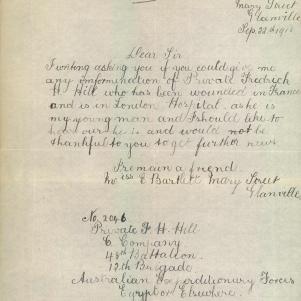 Mary Street
Glanville
Sep. 22nd 191
Dear Sir
I writing asking you if you could give me
any imformination of Private Fredrick
H. Hill who has been wounded in France
and is in London Hospital. as he is
my young man and I should like to
hear our he is and would not be
thankful to you to get further news
I remain a friend
Me ess E Bartlett Mary Street
Glanville
No. 2046
Private F. H. Hill
C. Company
48th Battalion.
12th Brigade
Australian Expordictionary Forces
Egypt or Elsewhere.